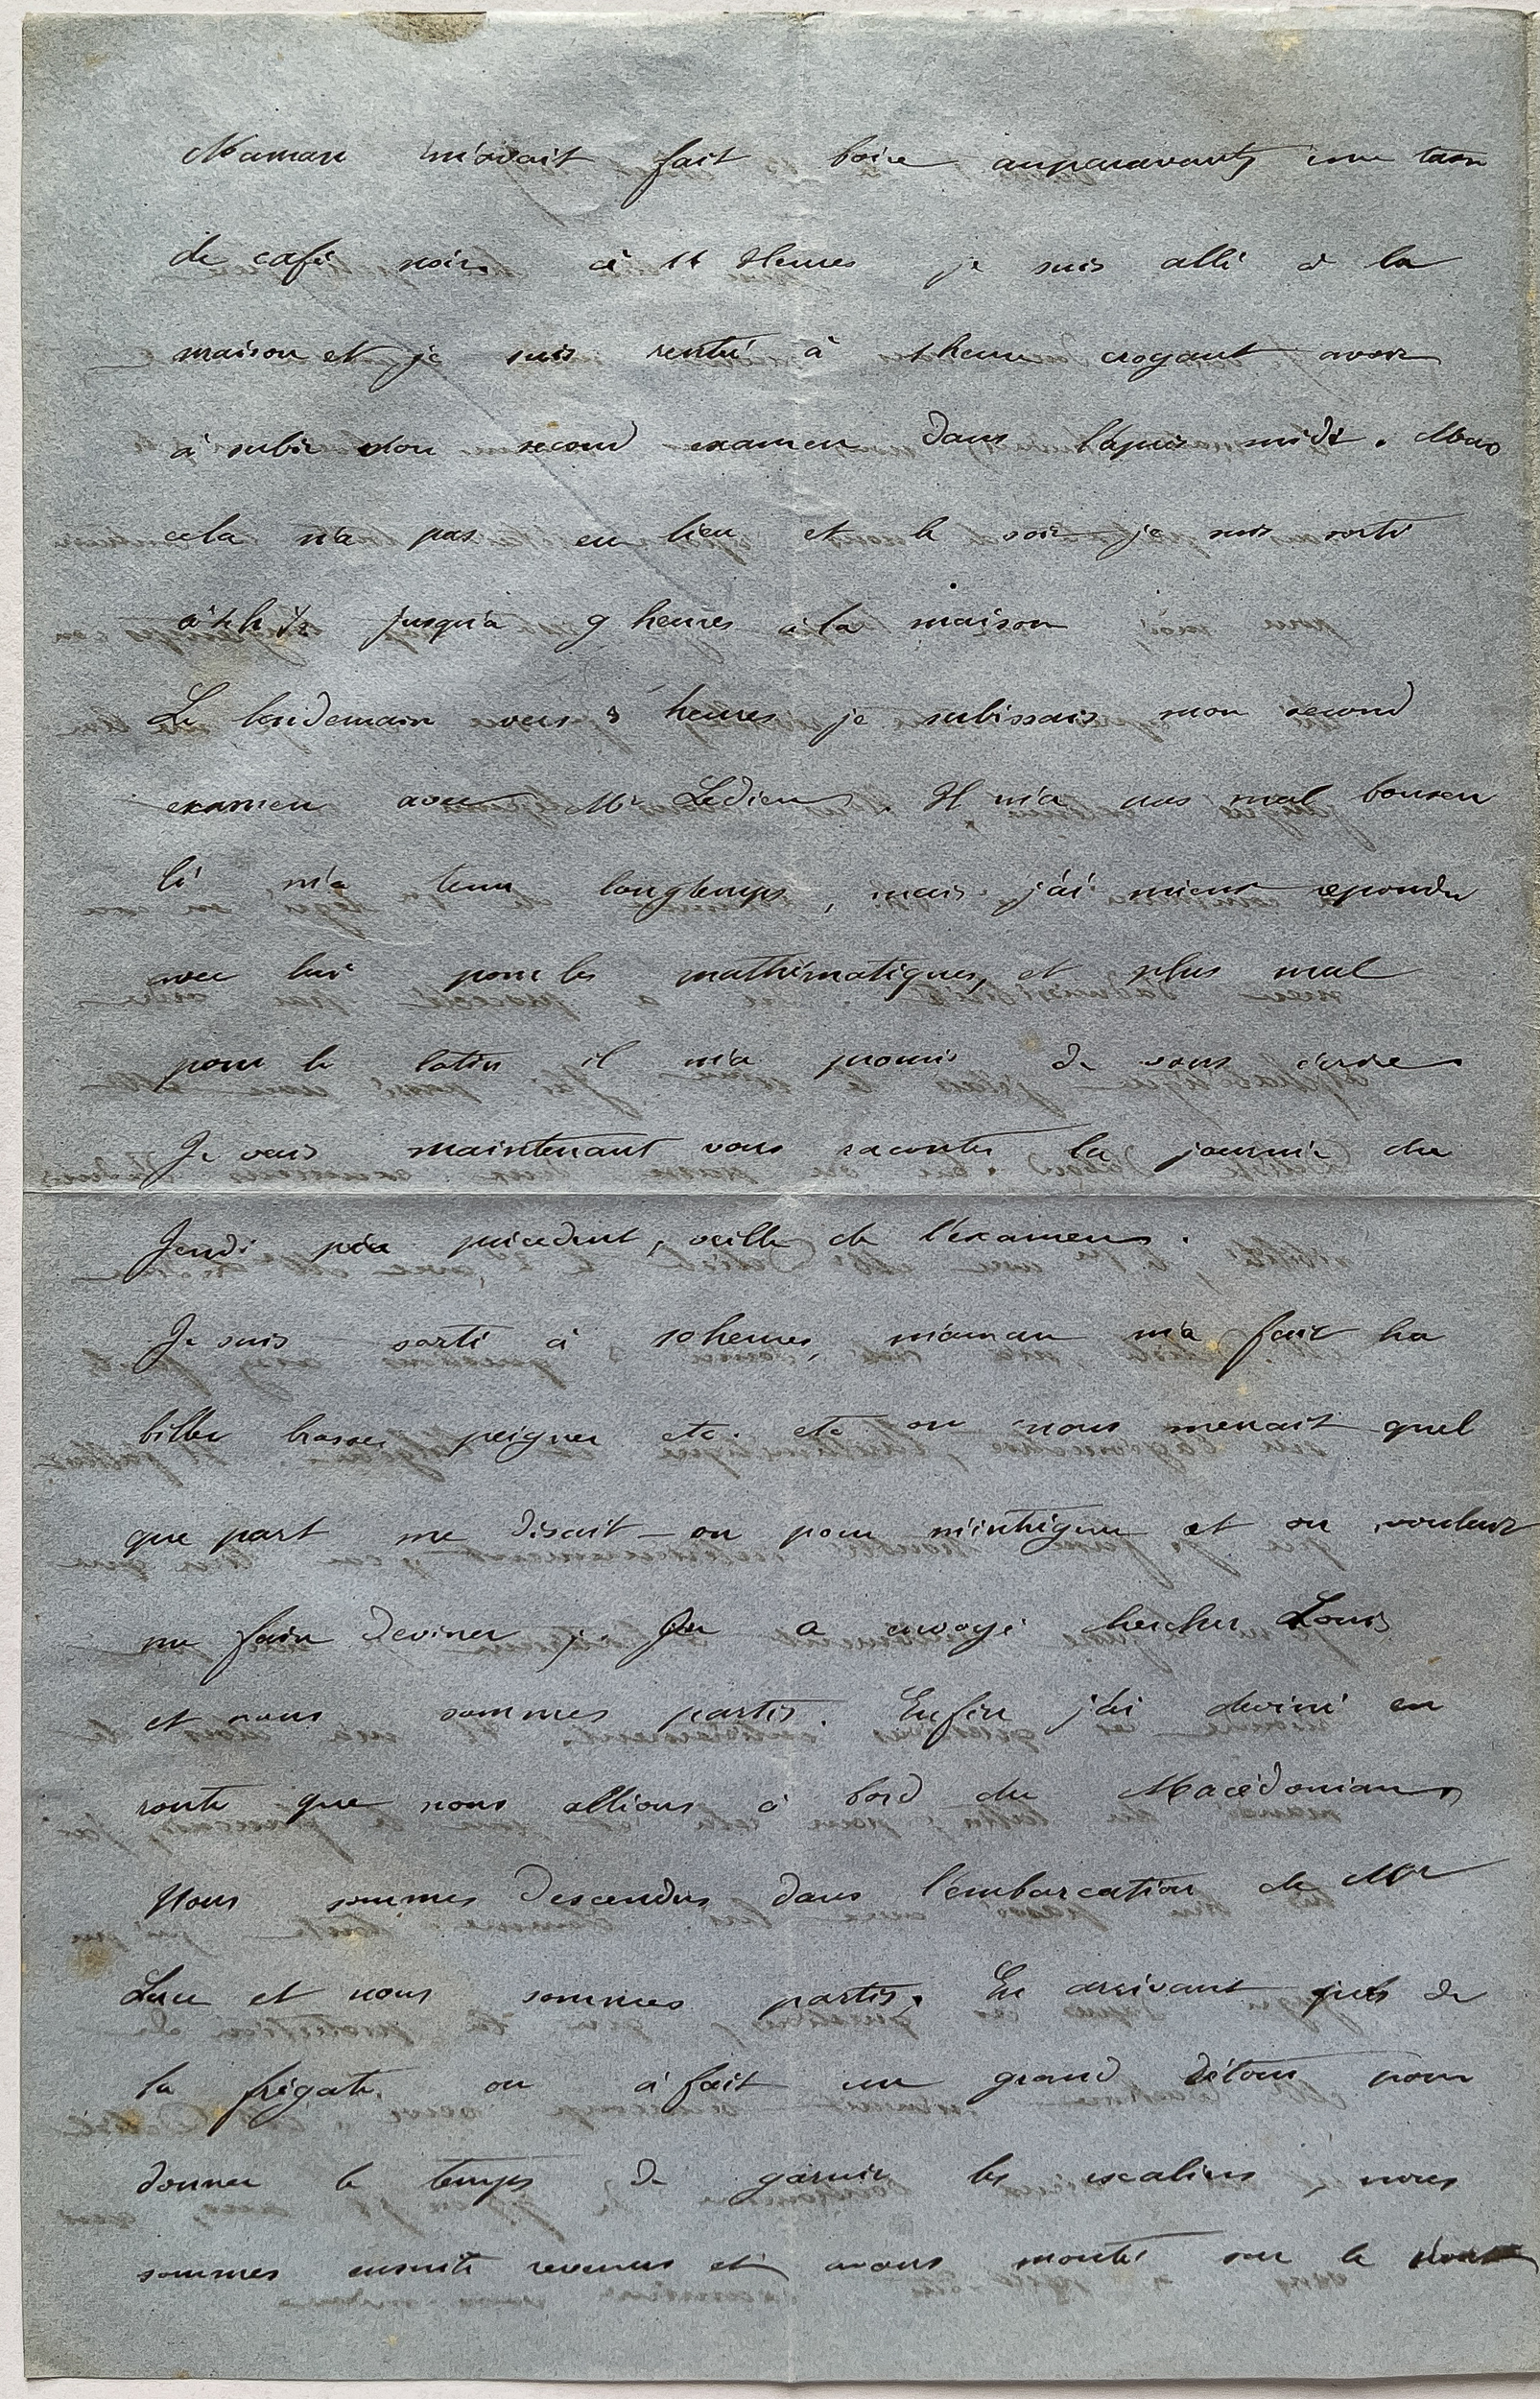 Maman m'avait fait boire auparavant une tasse
de café noir. à 11 Heures je suis allé à la
maison et je suis rentré à 1 heure croyant avoir
à subir mon second examen dans l'après midi. Mais
cela n'a pas eu lieu et le soir je suis sorti
jusqu'à 9 heures à la maison
Le lendemain vers 3 heures je subissais mon second
examen avec Mr Ledieu. Il m'a pas mal bouscu
lé m'a tenu longtemps, mais j'ai mieux repondu
avec lui pour les mathématiques, et plus mal
pour le latin il m'a promis de vous écrire
Je vais maintenant vous raconter la journée du
Jeudi précédent, veille de l'examen.
Je suis sorti à 10 heures, maman m'a fait ha
biller brosser peigner etc. etc on nous menait quel
que part me disait-on pour m'intriguer et on voulait
me faire deviner. On a envoyé chercher Louis
et nous sommes partis. Enfin j'ai deviné en
route que nous allions à bord du Macédonian
Nous sommes descendus dans l'embarcation de Mr
Luce et nous sommes partis. En arrivant près de
la frégate. on à fait un grand détour pour
donner le temps de garnir les escaliers, nous
sommes ensuite revenus et avons monté sur le pont